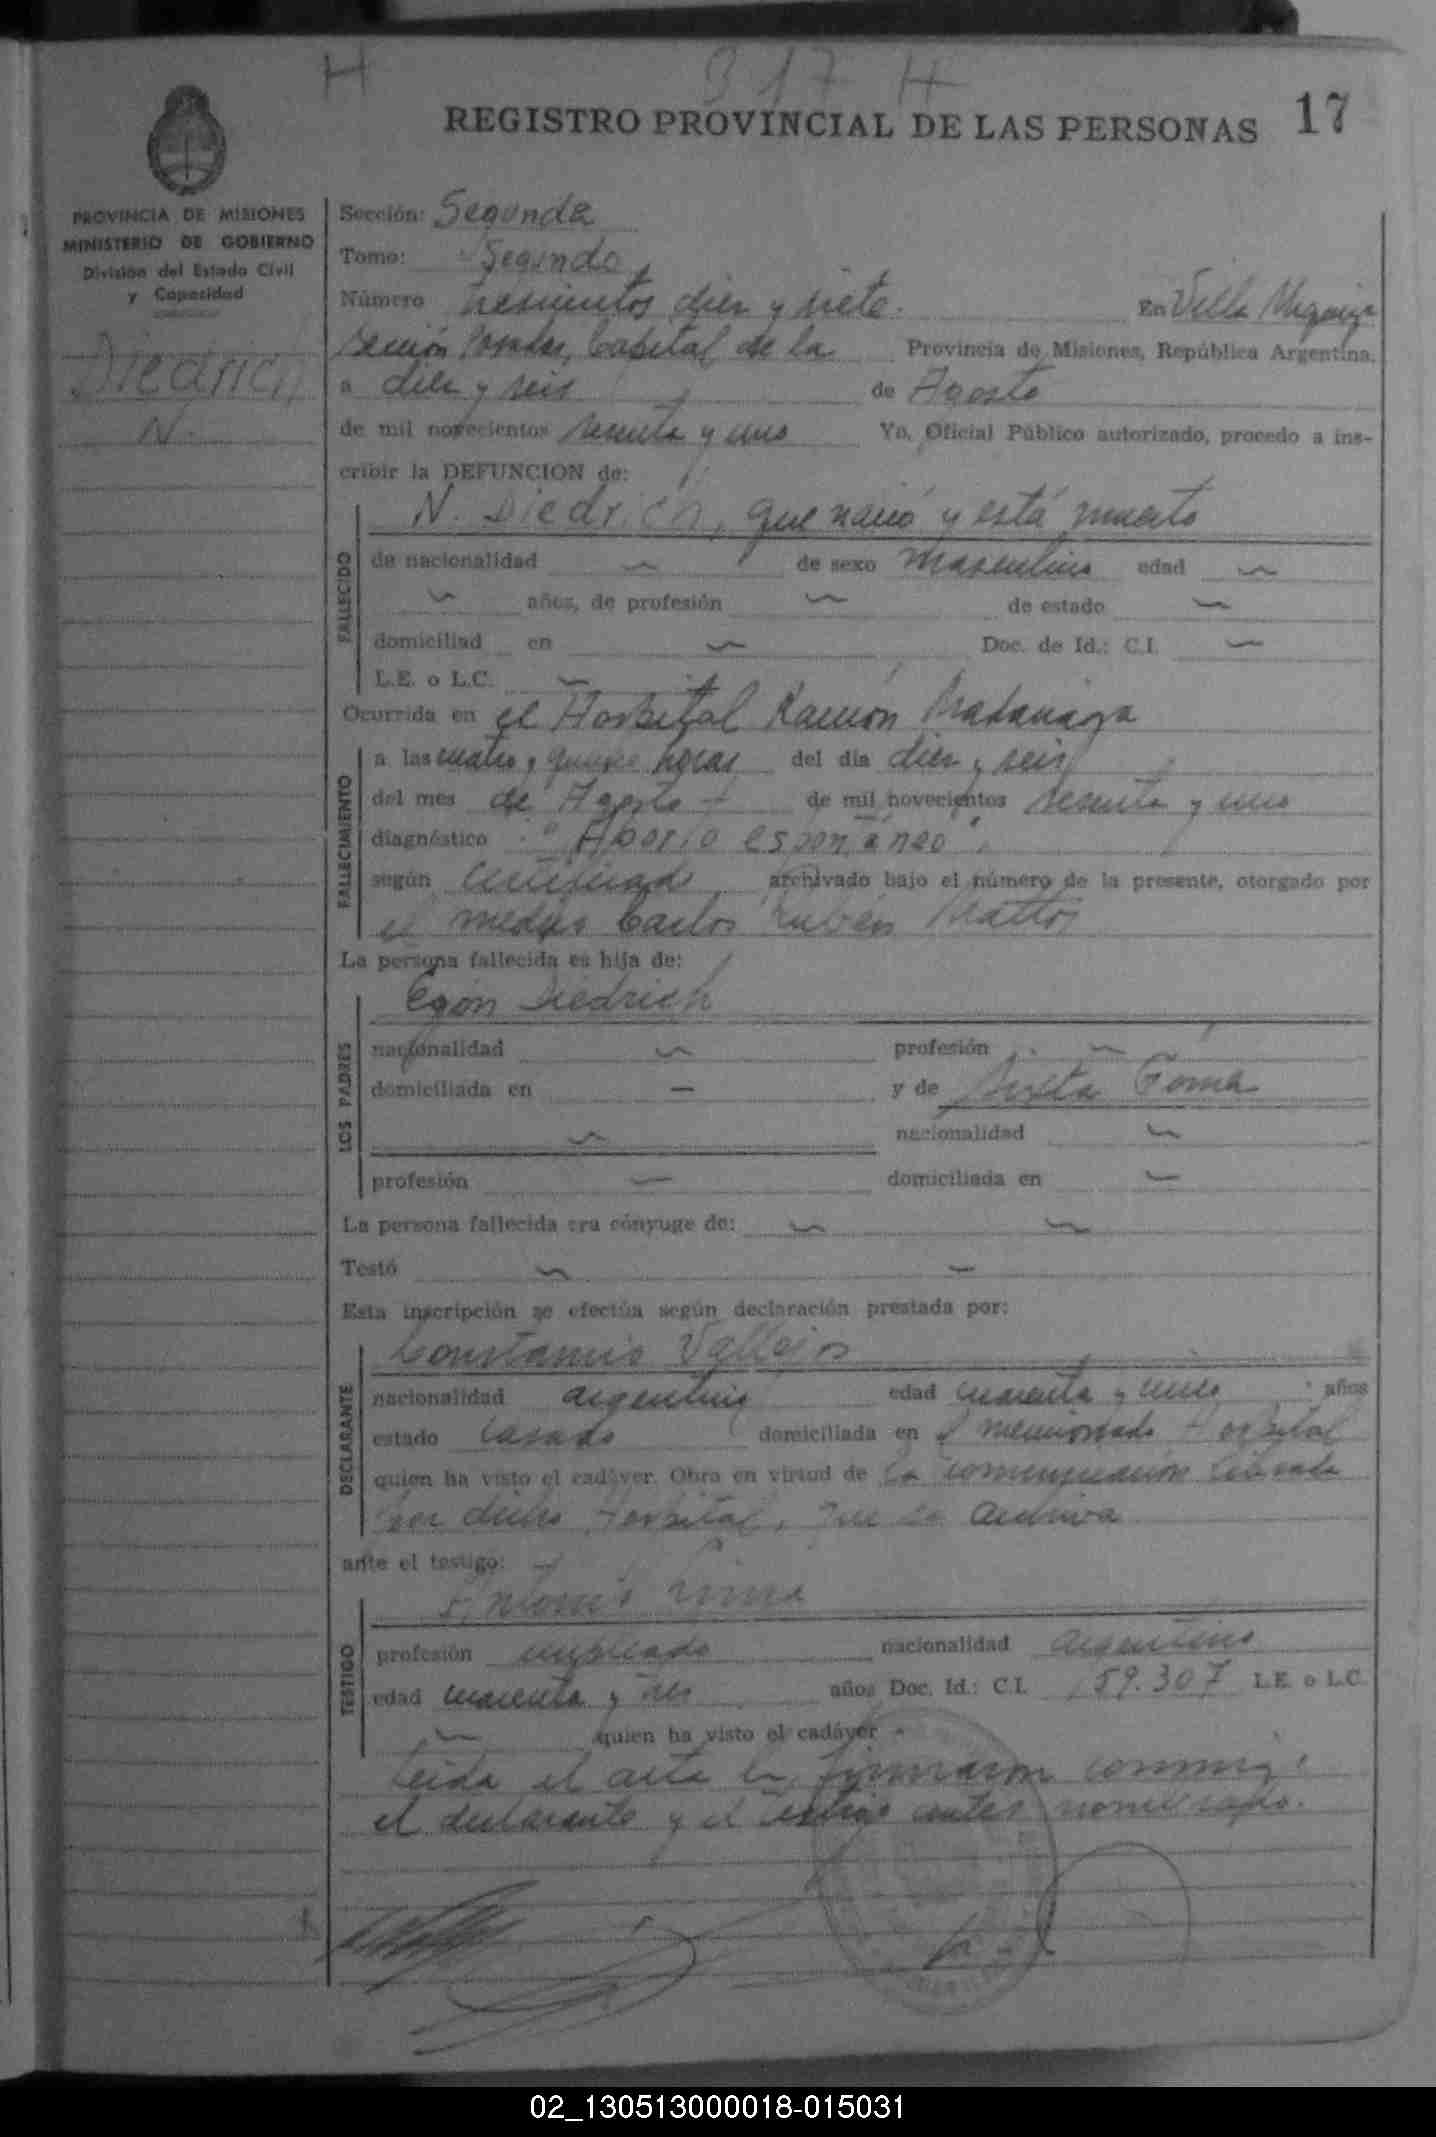 H 317 H
REGISTRO PROVINCIAL DE LAS PERSONAS 17
PROVINCIA DE MISIONES
MINISTERIO DE GOBIERNO
División del Estado Civil
y Capacidad
Diedrich
N.
Sección: Segunda
Tomo: Segundo
Número trescientos diez y siete. En Villa Urquiza
Sección Posadas, Capital de la Provincia de Misiones, República Argentina,
a diez y seis de Agosto
de mil novecientos sesenta y uno Yo, Oficial Público autorizado, procedo a ins-
cribir la DEFUNCION de:
N. Diedrich, que nació y está muerto
FALLECIDO
de nacionalidad de sexo masculino edad
años, de profesión de estado
domiciliad en Doc. de Id.: C.I.
L.E. o L.C.
Ocurrida en el Hospital Ramón Madariaga
FALLECIMIENTO
a las cuatro y quince horas del día diez y seis
del mes de Agosto de mil novecientos sesenta y uno
diagnóstico "Aborto espontáneo",
según certificado archivado bajo el número de la presente, otorgado por
el médico Carlos Rubén Mattos
La persona fallecida es hija de:
LOS PADRES
Egón Diedrich
nacionalidad profesión
domiciliada en y de
nacionalidad
profesión domiciliada en
La persona fallecida era cónyuge de:
Testó
Esta inscripción se efectúa según declaración prestada por:
DECLARANTE
Constancio Vallejos
nacionalidad argentino edad cuarenta y uno años
estado casado domiciliada en el mencionado Hospital
quien ha visto el cadáver. Obra en virtud de la comunicación librada
por dicho Hospital, que se archiva
ante el testigo:
TESTIGO
Antonio
profesión empleado nacionalidad argentino
edad cuarenta y tres años Doc. Id.: C.I. 159.307 L.E. o L.C.
quien ha visto el cadáver
Leída el acta la firmaron conmigo
el declarante y el testigo antes nombrado.
02_130513000018-015031